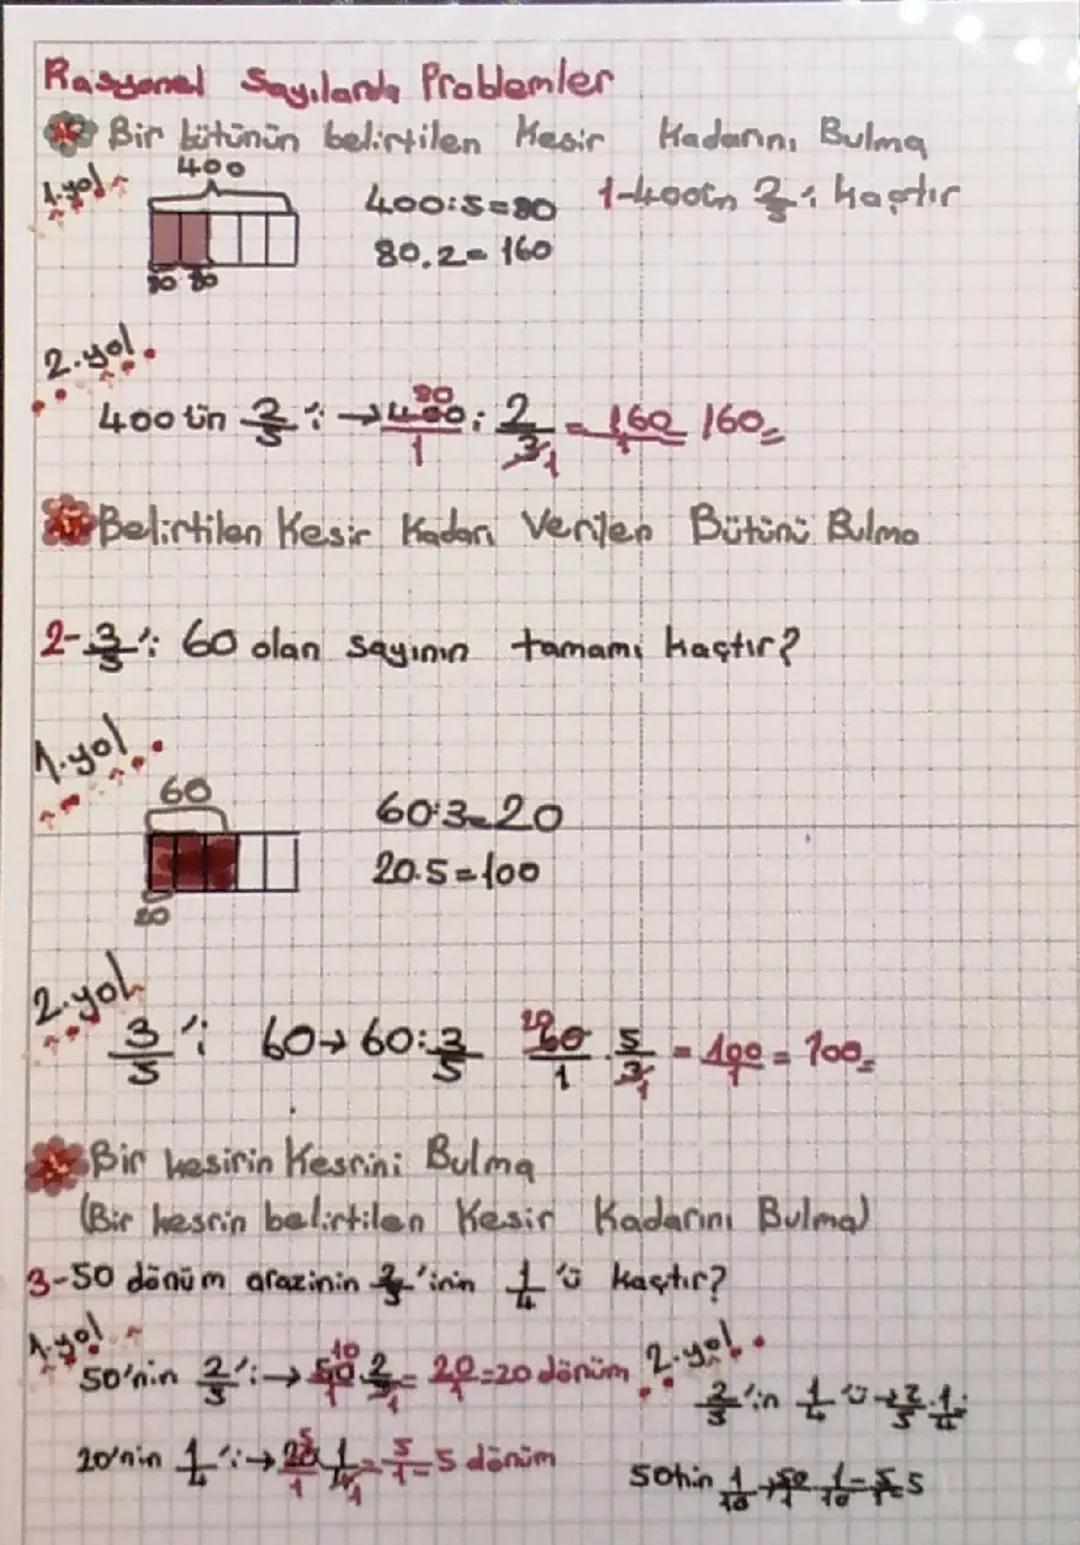 Rasyonel Sayılarda Problemler
Bir bütünün belirtilen Kesir Kadarını Bulma
1.yol
400
400:5=80
1-400ün 2/5'i kaçtır
80.2=160
80 80
2.yol
400ün 2/5'i → 400/1 : 2/5 = 160/1 160
80
1
Belirtilen Kesir Kadarı Verilen Bütünü Bulma
2- 3/5'i 60 olan sayının tamamı kaçtır?
1.yol
60
60:3=20
20.5=100
20
2.yol
3/5'i 60→60:3/5 60/1 . 5/3 = 100/1 = 100
20
1
Bir kesirin Kesrini Bulma
(Bir kesrin belirtilen Kesir Kadarını Bulma)
3-50 dönüm arazinin 2/5'inin 1/4'ü kaçtır?
1.yol
50'nin 2/5'i → 50/1 2/5 = 20/1 =20 dönüm
10
1
2.yol
2/5'in 1/4'ü → 2/5 . 1/4
20'nin 1/4'i → 20/1 1/4 = 5/1 = 5 dönüm
5
1
50nin 1/10 → 50/1 1/10 = 5/1 = 5